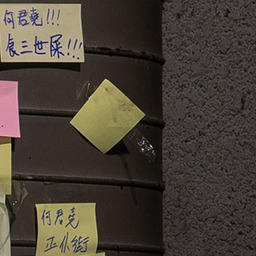 何君堯!!!
食三世屎!!!
何君堯
正仆街